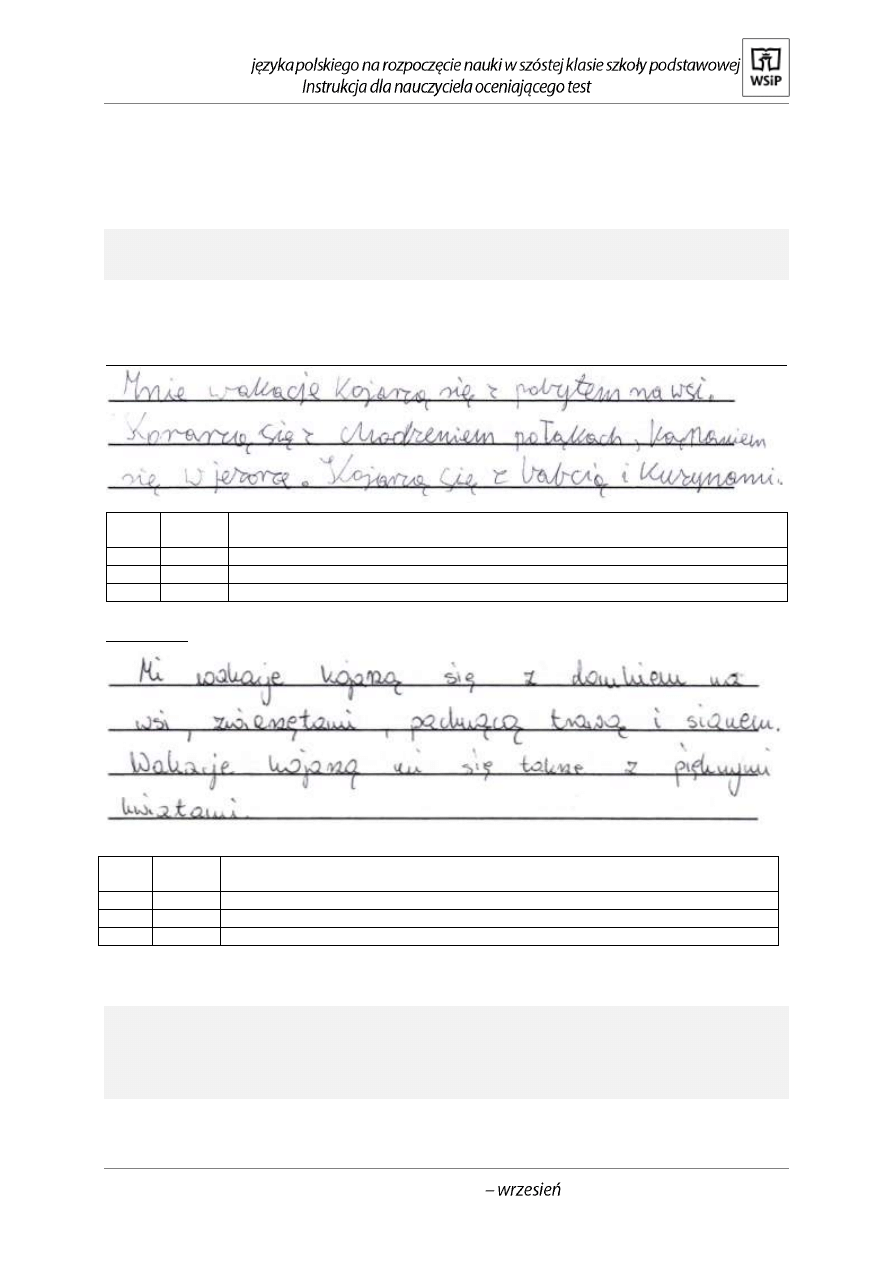 języka polskiego na rozpoczęcie nauki w szóstej klasie szkoły podstawowej
Instrukcja dla nauczyciela oceniającego test
WSiP
Mnie wakacje kojarzą się z pobytem na wsi.
się z chodzeniem połąkach, kąpaniem
się w jezorze. Kojarzą się z babcią i kuzynami.
Mi wakaje kojażą się z domkiem na
wsi, zwierzętami, pachnącą trawą i sianem.
Wakacje kojażą mi się także z pięknymi
kwiatami.
– wrzesień